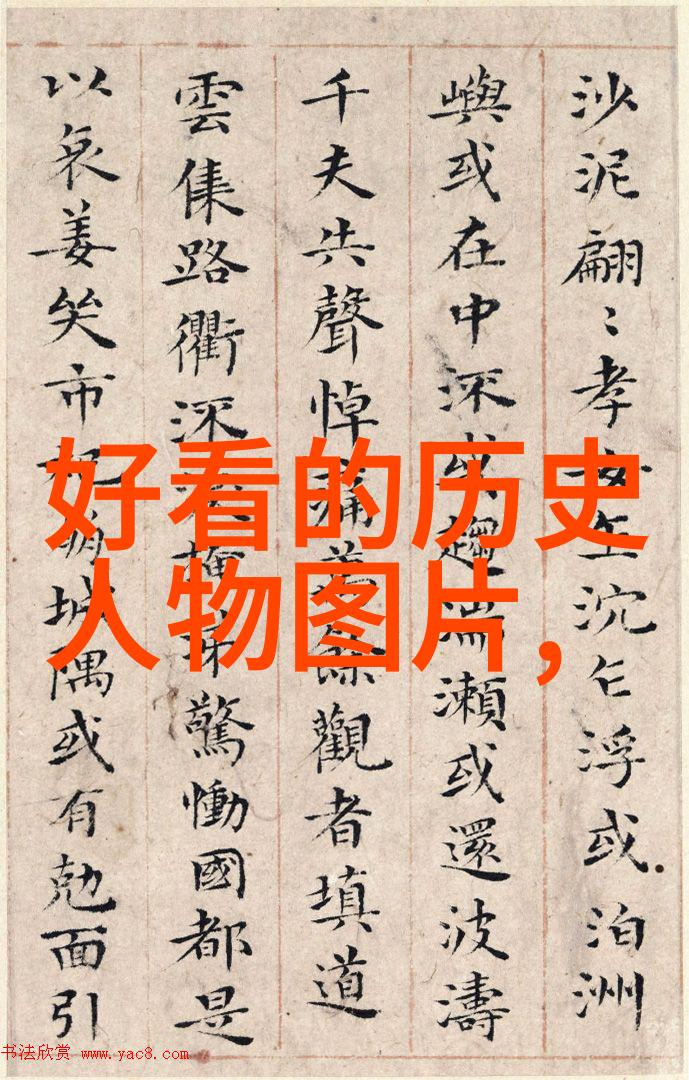 沙泥翩〻孝女乍沉乍浮或泊洲
嶼或在中深或趨湍瀨或還波濤
千夫失聲悼痛萬餘觀者填道
雲集路衢掩涕驚慟國都是
以哀姜哭市杞崩城隅或有勊面引
好看的历史
人物图片,
书法欣赏 www.yac8.com